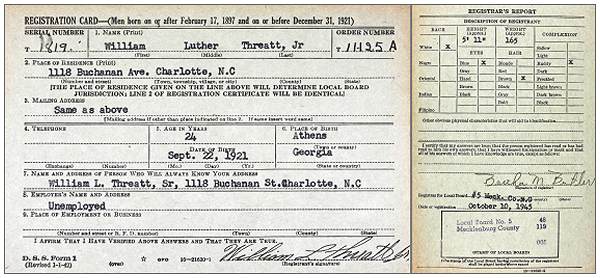 REGISTRATION CARD—(Men born on or after February 17, 1897 and on or before December 31, 1921)
SERIAL NUMBER
1. NAME (Print)
ORDER NUMBER
819
William Luther Threatt, Jr
11425 A
(First) (Middle) (Last)
2. PLACE OF RESIDENCE (Print)
1118 Buchanan Ave. Charlotte, N.C
(Number and street) (Town, township, village, or city) (County) (State)
[THE PLACE OF RESIDENCE GIVEN ON THE LINE ABOVE WILL DETERMINE LOCAL BOARD
JURISDICTION; LINE 2 OF REGISTRATION CERTIFICATE WILL BE IDENTICAL]
3. MAILING ADDRESS
Same as above
[Mailing address if other than place indicated on line 2. If same insert word same]
4. TELEPHONE
5. AGE IN YEARS
6. PLACE OF BIRTH
24
Athens
DATE OF BIRTH
(Town or county)
Sept. 22, 1921
Georgia
(Exchange) (Number)
(Mo.) (Day) (Yr.)
(State or country)
7. NAME AND ADDRESS OF PERSON WHO WILL ALWAYS KNOW YOUR ADDRESS
William L. Threatt, Sr, 1118 Buchanan St.Charlotte, N.C
8. EMPLOYER'S NAME AND ADDRESS
Unemployed
9. PLACE OF EMPLOYMENT OR BUSINESS
(Number and street or R. F. D. number) (Town) (County) (State)
I AFFIRM THAT I HAVE VERIFIED ABOVE ANSWERS AND THAT THEY ARE TRUE.
D. S. S. Form 1
(Revised 1-1-42)
(over)
16—21630-1
William L Threatt Jr
(Registrant's signature)
REGISTRAR'S REPORT
DESCRIPTION OF REGISTRANT
RACE
HEIGHT (Approx.)
WEIGHT (Approx.)
COMPLEXION
5' 11"
165
White X
EYES
HAIR
Sallow
Light
Negro
Blue
X
Blonde
Ruddy
X
Gray
Red
Dark
Oriental
Hazel
Brown
X
Freckled
Brown
Black
Light brown
Indian
Black
Gray
Dark brown
Bald
Black
Filipino
Other obvious physical characteristics that will aid in identification
Bertha M. Butler
Registrar for Local Board #5 Meck. Co. N.C
Date of registration October 10, 1945
Local Board No. 5 48
Mecklenburg County 119
001
(STAMP OF LOCAL BOARD)